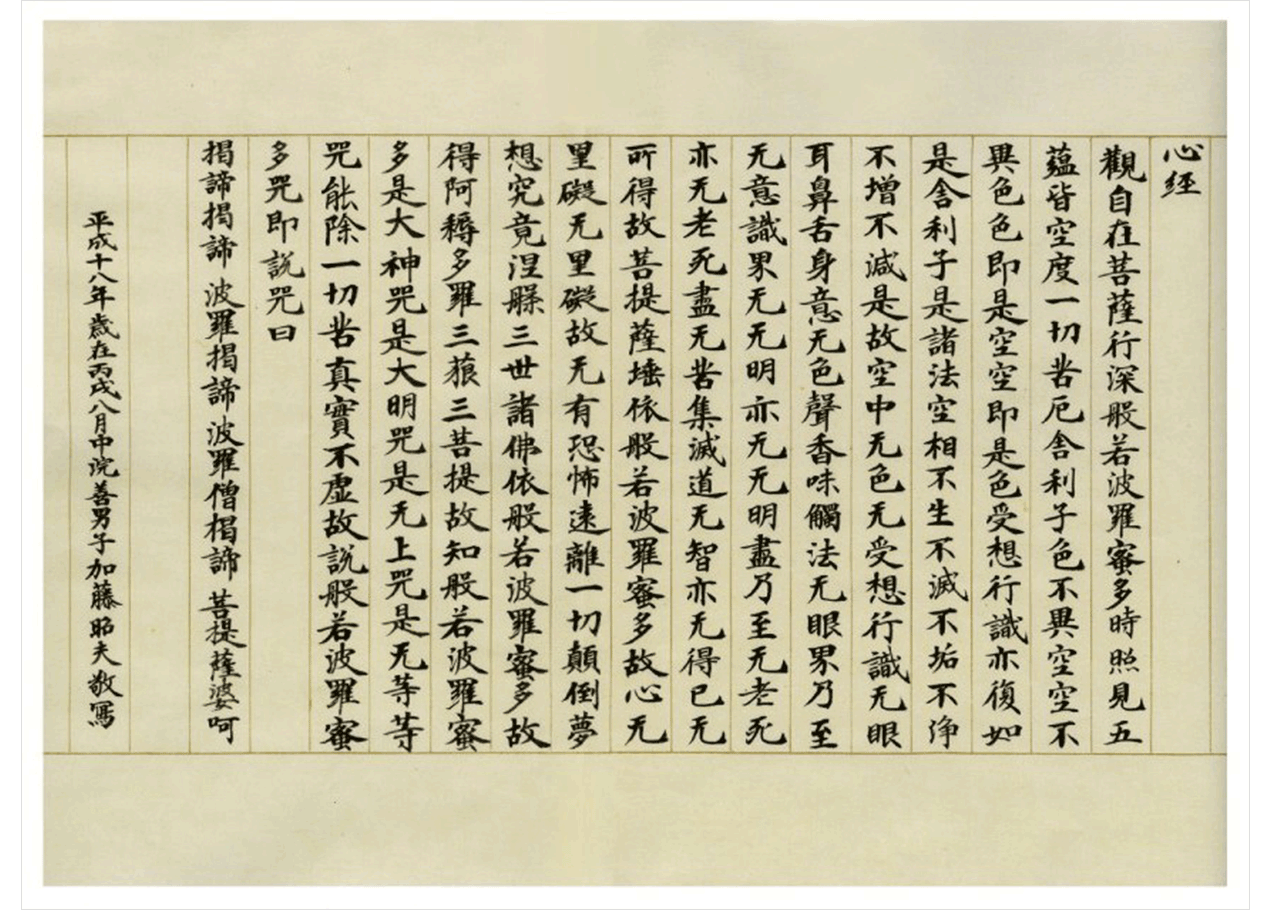 心経
觀自在菩薩行深般若波羅蜜多時照見五
蘊皆空度一切苦厄舍利子色不異空空不
異色色即是空空即是色受想行識亦復如
是舍利子是諸法空相不生不滅不垢不浄
不增不減是故空中无色无受想行識无眼
耳鼻舌身意无色聲香味觸法无眼界乃至
无意識界无无明亦无无明盡乃至无老死
亦无老死盡无苦集滅道无智亦无得已无
所得故菩提薩埵依般若波羅蜜多故心无
罣礙无罣礙故无有恐怖遠離一切顛倒夢
想究竟涅槃三世諸佛依般若波羅蜜多故
得阿耨多羅三藐三菩提故知般若波羅蜜
多是大神咒是大明咒是无上咒是无等等
咒能除一切苦真實不虛故說般若波羅蜜
多咒即說咒曰
揭諦揭諦 波羅揭諦 波羅僧揭諦 菩提薩婆呵
平成十八年歳在丙戌八月中院善男子加藤昭夫敬寫